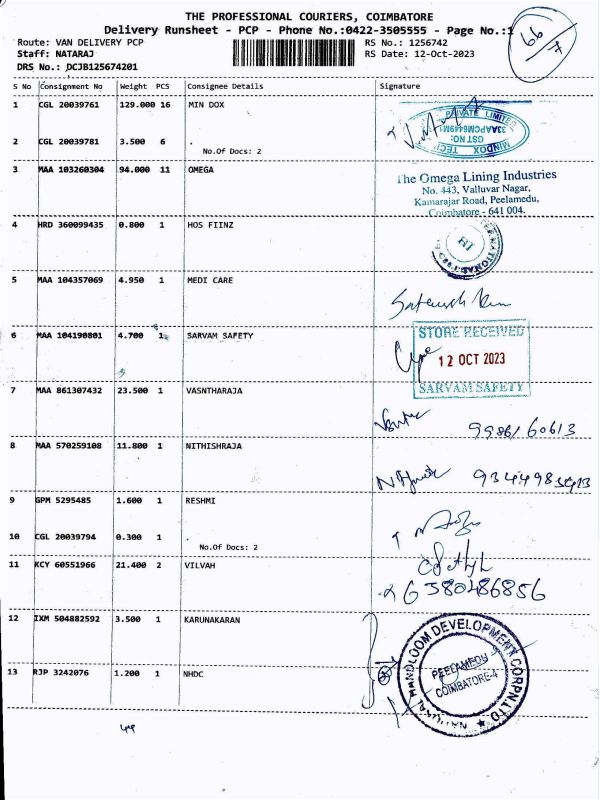 THE PROFESSIONAL COURIERS, COIMBATORE
Delivery Runsheet - PCP - Phone No.:0422-3505555 - Page No.:1
66
7
Route: VAN DELIVERY PCP RS No.: 1256742
Staff: NATARAJ RS Date: 12-Oct-2023
DRS No.: DCJB125674201
S No Consignment No Weight PCS Consignee Details Signature
1 CGL 20039761 129.000 16 MIN DOX
PRIVATE LIMITED
GST NO:
MINDOX TECH
2 CGL 20039781 3.500 6 .
No.Of Docs: 2
3 MAA 103260304 94.000 11 OMEGA
The Omega Lining Industries
No. 443, Valluvar Nagar,
Kamarajar Road, Peelamedu,
Coimbatore - 641 004.
4 HRD 360099435 0.800 1 HOS FIINZ
HI
5 MAA 104357069 4.950 1 MEDI CARE
6 MAA 104190801 4.700 1 SARVAM SAFETY
STORE RECEIVED
12 OCT 2023
SARVAM SAFETY
7 MAA 861307432 23.500 1 VASNTHARAJA
8 MAA 570259108 11.800 1 NITHISHRAJA
9 GPM 5295485 1.600 1 RESHMI
10 CGL 20039794 0.300 1 .
No.Of Docs: 2
11 KCY 60551966 21.400 2 VILVAH
6380486856
12 IXM 504882592 3.500 1 KARUNAKARAN
13 RJP 3242076 1.200 1 NHDC
NATIONAL HANDLOOM DEVELOPMENT CORPN.LTD
PEELAMEDU
COIMBATORE-4
44